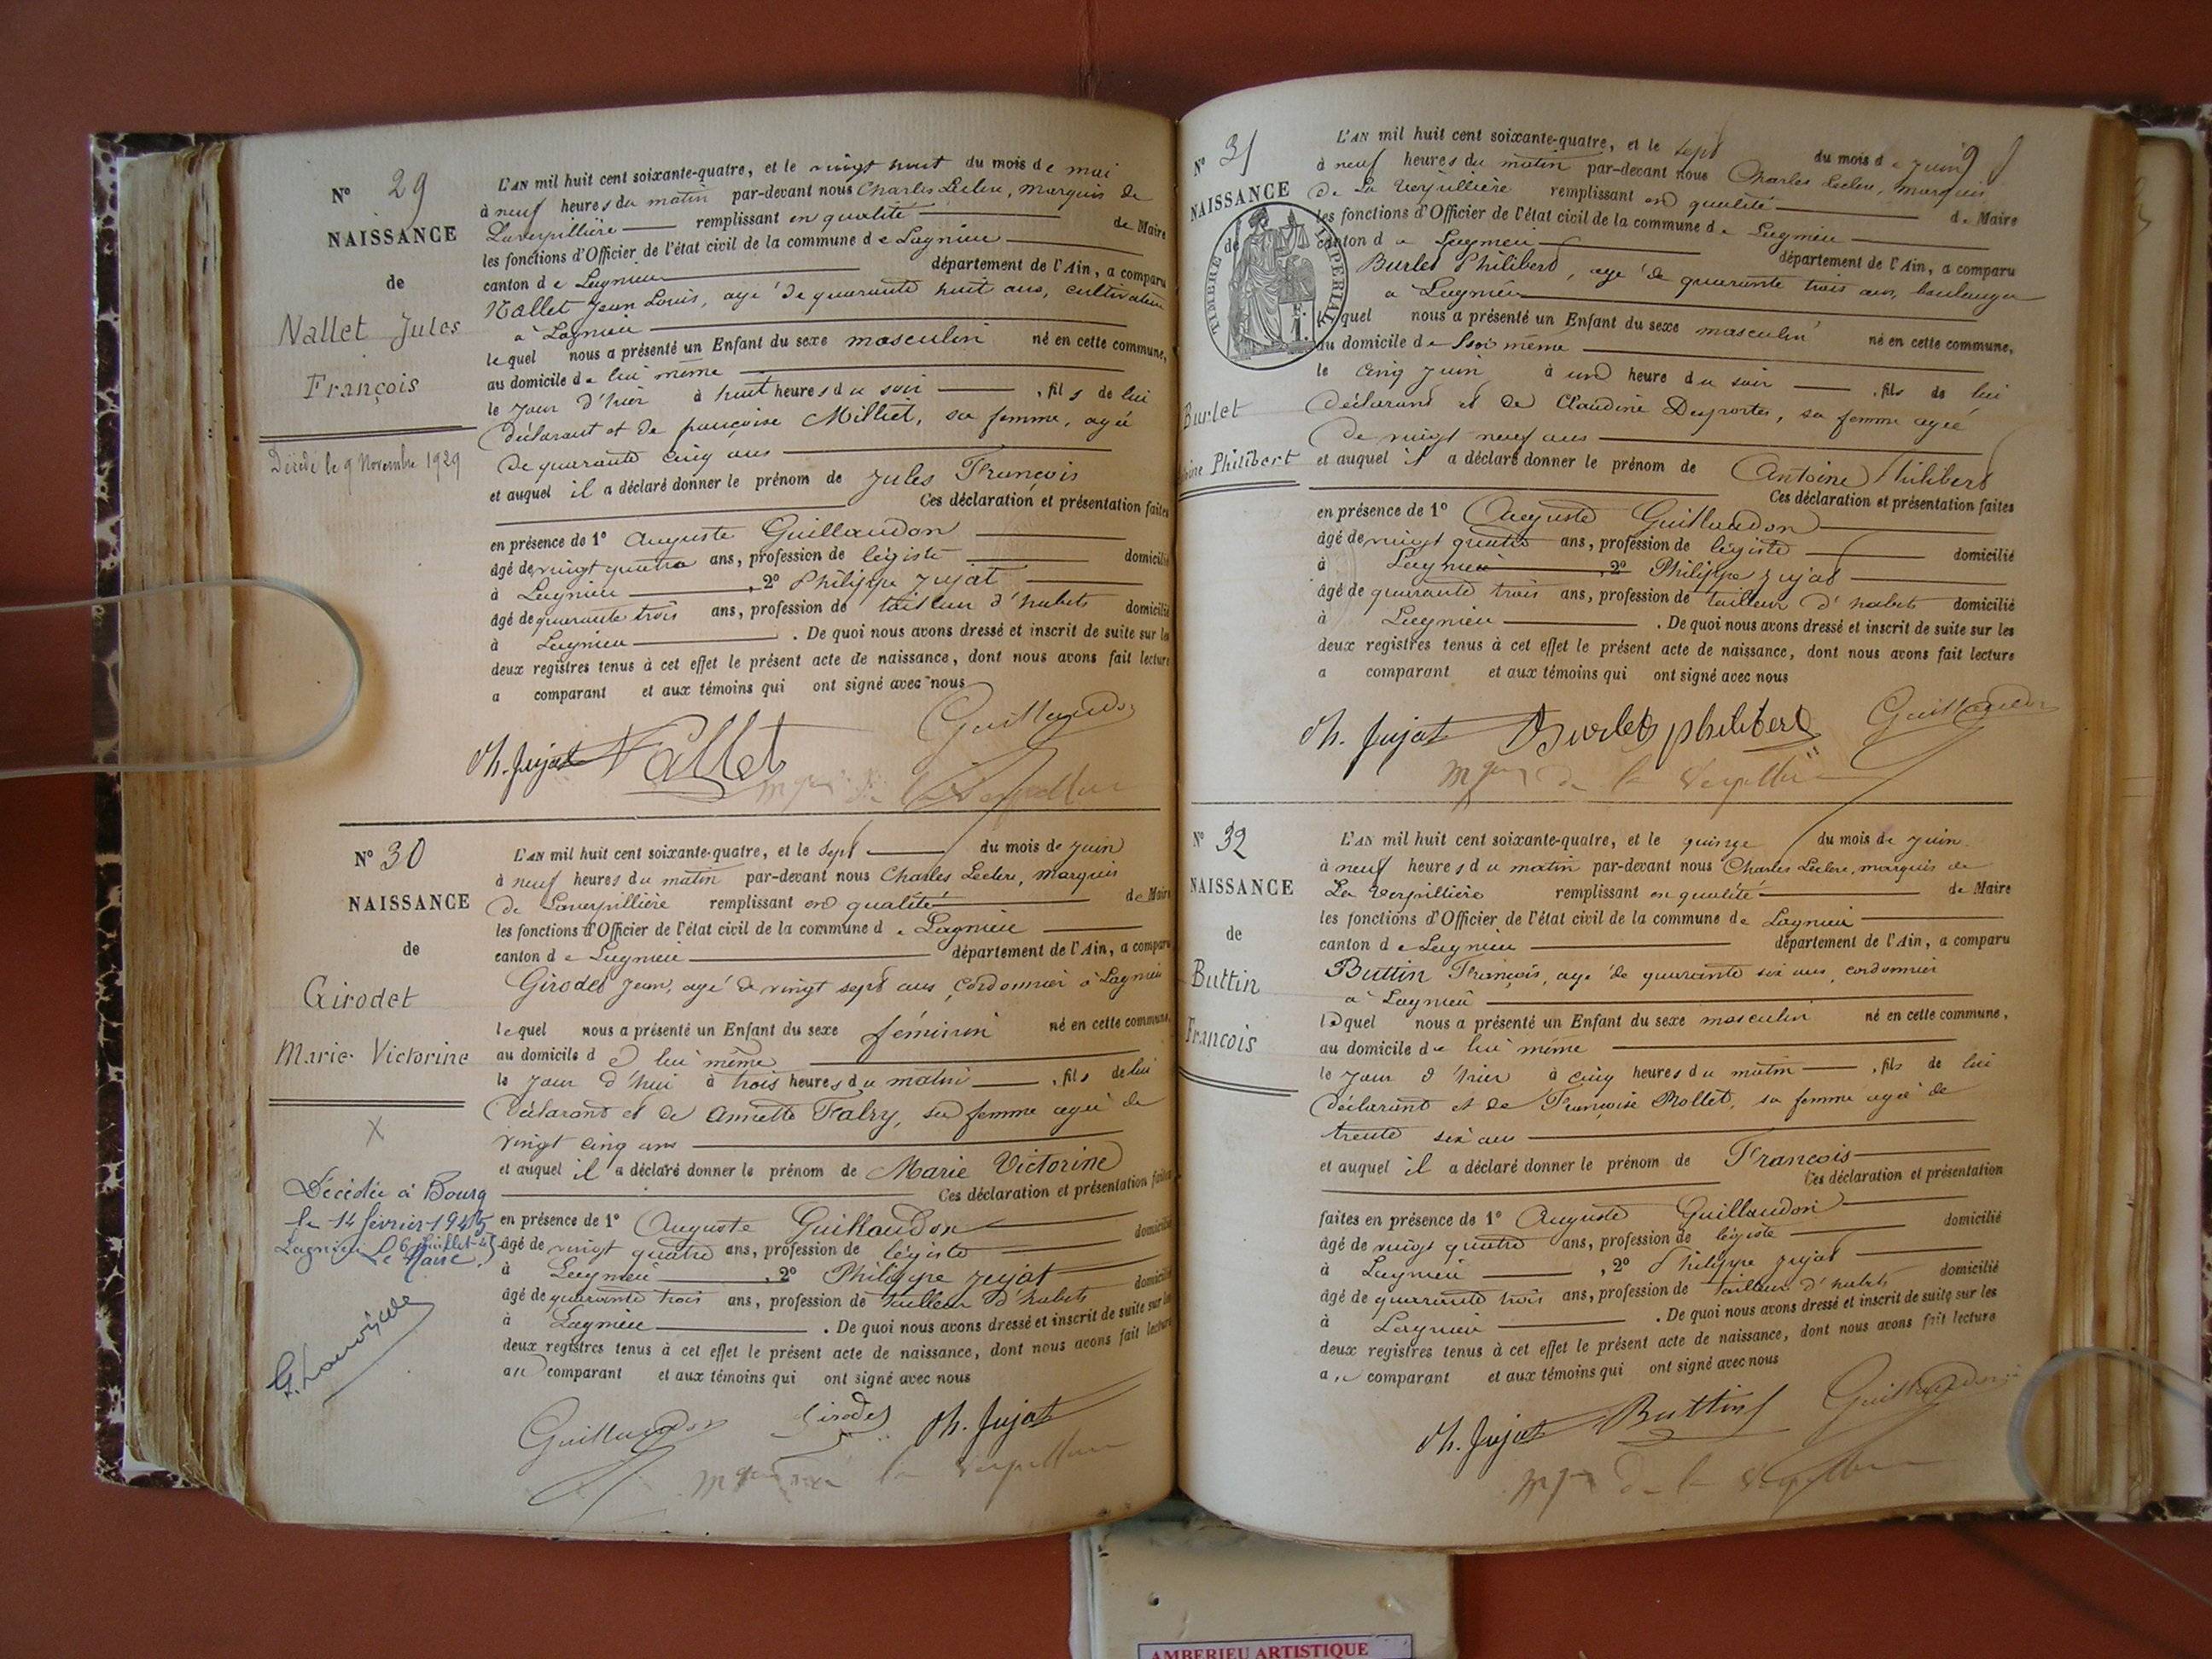 N° 29
NAISSANCE
de
Nallet Jules
François
Décédé le 9 Novembre 1929
L'AN mil huit cent soixante-quatre, et le vingt huit du mois de mai
à neuf heures du matin par-devant nous Charles Leclerc, marquis de
Laverpillière remplissant en qualité de Maire
les fonctions d'Officier de l'état civil de la commune de Lagnieu
canton de Lagnieu département de l'Ain, a comparu
Nallet Jean Louis, agé de quarante huit ans, cultivateur
à Lagnieu
lequel nous a présenté un Enfant du sexe masculin né en cette commune,
au domicile de lui même
le jour d'hier à huit heures du soir , fils de lui
déclarant et de françoise Milliet, sa femme, agée
de quarante cinq ans
et auquel il a déclaré donner le prénom de Jules François
Ces déclaration et présentation faites
en présence de 1° Auguste Guillaudon
âgé de vingt quatre ans, profession de légiste domicilié
à Lagnieu , 2° Philippe Jujat
âgé de quarante trois ans, profession de tailleur d'habits domicilié
à Lagnieu . De quoi nous avons dressé et inscrit de suite sur les
deux registres tenus à cet effet le présent acte de naissance, dont nous avons fait lecture
a comparant et aux témoins qui ont signé avec nous
Guillaudon
Ph. Jujat Nallet
de la Verpillière
N° 30
NAISSANCE
de
Girodet
Marie Victorine
X
Décédée à Bourg
le 14 février 1945
Lagnieu le 6 juillet 45
Le Maire,
L'AN mil huit cent soixante-quatre, et le sept du mois de juin
à neuf heures du matin par-devant nous Charles Leclerc, marquis
de Laverpillière remplissant en qualité de Maire
les fonctions d'Officier de l'état civil de la commune de Lagnieu
canton de Lagnieu département de l'Ain, a comparu
Girodet Jean, agé de vingt sept ans, cordonnier à Lagnieu
lequel nous a présenté un Enfant du sexe féminin né en cette commune,
au domicile de lui même
le jour d'hui à trois heures du matin , fils de lui
déclarant et de Annette Falry, sa femme agée de
vingt cinq ans
et auquel il a déclaré donner le prénom de Marie Victorine
Ces déclaration et présentation faites
en présence de 1° Auguste Guillaudon
âgé de vingt quatre ans, profession de légiste domicilié
à Lagnieu , 2° Philippe Jujat
âgé de quarante trois ans, profession de tailleur d'habits domicilié
à Lagnieu . De quoi nous avons dressé et inscrit de suite sur les
deux registres tenus à cet effet le présent acte de naissance, dont nous avons fait lecture
au comparant et aux témoins qui ont signé avec nous
Guillaudon Girodet Ph. Jujat
de la Verpillière
N° 31
NAISSANCE
de
TIMBRE IMPERIAL
Burlet
Antoine Philibert
L'AN mil huit cent soixante-quatre, et le sept du mois de juin
à neuf heures du matin par-devant nous Charles Leclerc, marquis
de La Verpillière remplissant en qualité de Maire
les fonctions d'Officier de l'état civil de la commune de Lagnieu
canton de Lagnieu département de l'Ain, a comparu
Burlet Philibert, agé de quarante trois ans, boulanger
à Lagnieu
lequel nous a présenté un Enfant du sexe masculin né en cette commune,
au domicile de soi même
le cinq juin à une heure du soir , fils de lui
déclarant et de Claudine Desportes, sa femme agée
de vingt neuf ans
et auquel il a déclaré donner le prénom de Antoine Philibert
Ces déclaration et présentation faites
en présence de 1° Auguste Guillaudon
âgé de vingt quatre ans, profession de légiste domicilié
à Lagnieu , 2° Philippe Jujat
âgé de quarante trois ans, profession de tailleur d'habits domicilié
à Lagnieu . De quoi nous avons dressé et inscrit de suite sur les
deux registres tenus à cet effet le présent acte de naissance, dont nous avons fait lecture
a comparant et aux témoins qui ont signé avec nous
Ph. Jujat Burlet philibert Guillaudon
de la Verpillière
N° 32
NAISSANCE
de
Buttin
François
L'AN mil huit cent soixante-quatre, et le quinze du mois de juin
à neuf heures du matin par-devant nous Charles Leclerc, marquis de
La Verpillière remplissant en qualité de Maire
les fonctions d'Officier de l'état civil de la commune de Lagnieu
canton de Lagnieu département de l'Ain, a comparu
Buttin François, agé de quarante six ans, cordonnier
à Lagnieu
lequel nous a présenté un Enfant du sexe masculin né en cette commune,
au domicile de lui même
le jour d'hier à cinq heures du matin , fils de lui
déclarant et de Françoise Rollet, sa femme agée de
trente six ans
et auquel il a déclaré donner le prénom de François
Ces déclaration et présentation
faites en présence de 1° Auguste Guillaudon
âgé de vingt quatre ans, profession de légiste domicilié
à Lagnieu , 2° Philippe Jujat
âgé de quarante trois ans, profession de tailleur d'habits domicilié
à Lagnieu . De quoi nous avons dressé et inscrit de suite sur les
deux registres tenus à cet effet le présent acte de naissance, dont nous avons fait lecture
au comparant et aux témoins qui ont signé avec nous
Ph. Jujat Buttin Guillaudon
de la Verpillière
AMBERIEU ARTISTIQUE